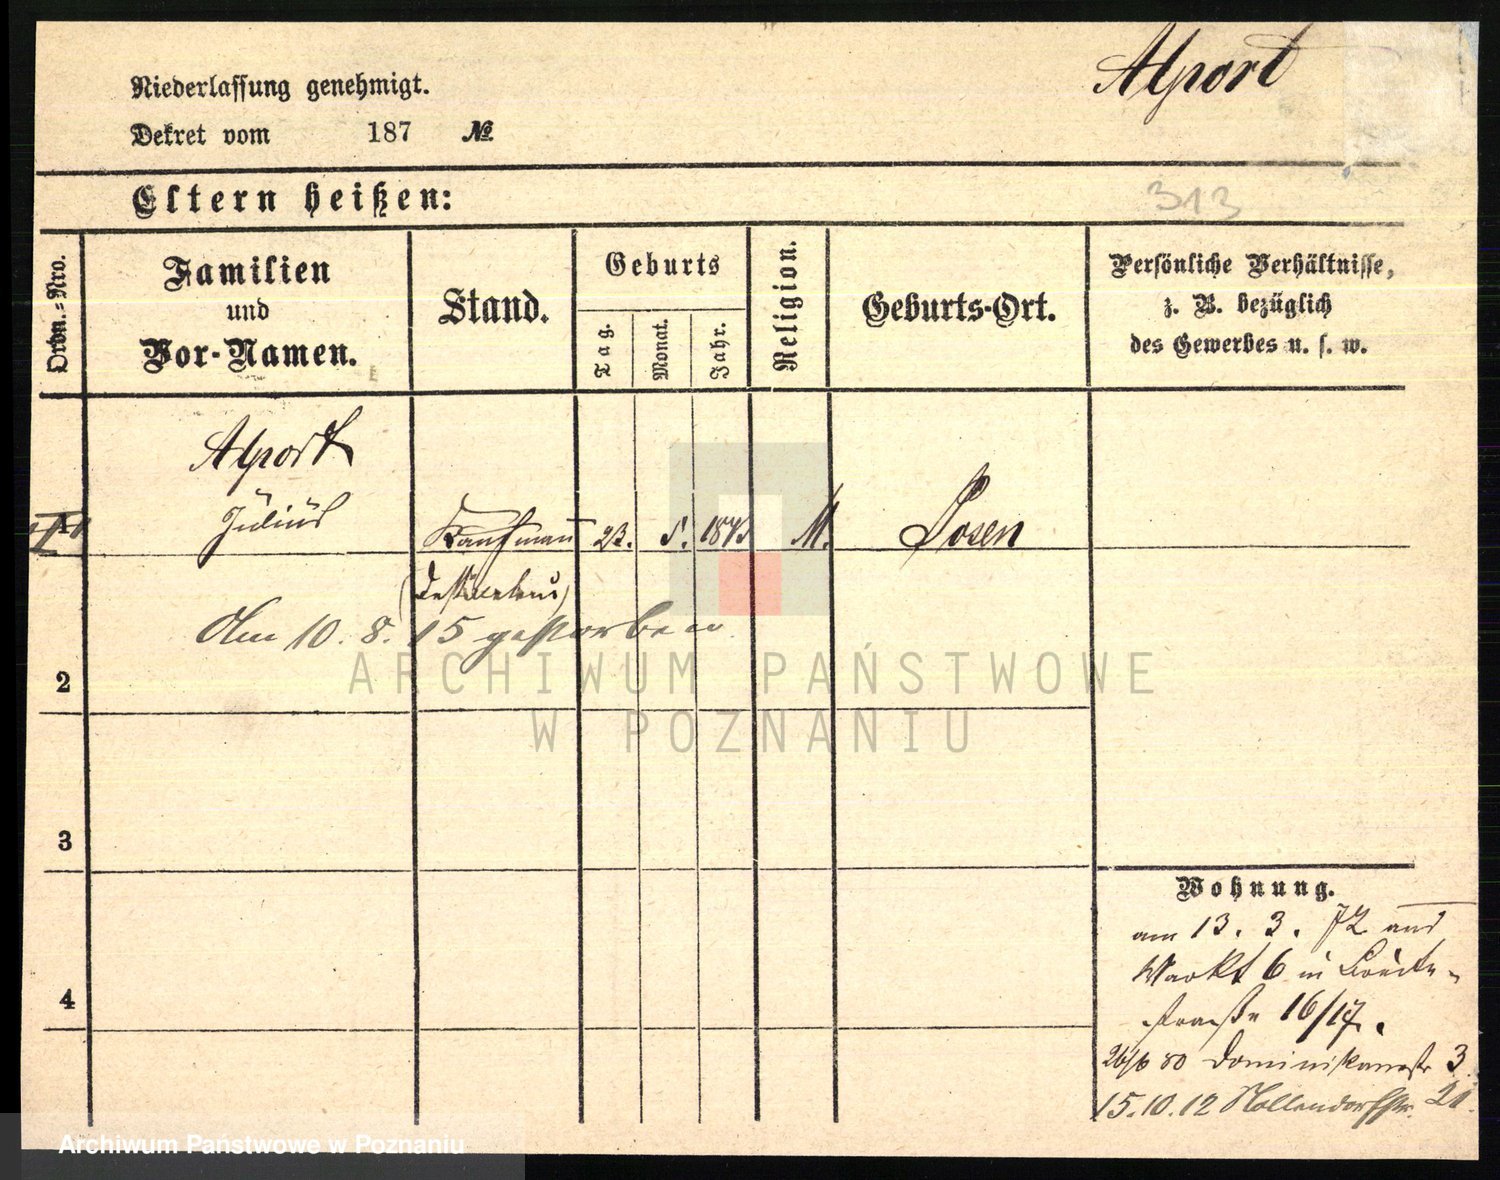 Alport
Niederlassung genehmigt.
Dekret vom 187 №
Eltern heißen:
313
Ordn.=Nro.
Familien
und
Vor-Namen.
Stand.
Geburts
Tag.
Monat.
Jahr.
Religion.
Geburts-Ort.
Persönliche Verhältnisse,
z. B. bezüglich
des Gewerbes u. s. w.
Alport
1 Julius Kaufmann 23. M. Posen
Am 10. 8. 15 gestorben
2
3
4
Wohnung.
am 13. 3. 72 aus
Markt 6 in Breite-
straße 16/17.
26/6 80 Dominikanerstr 3
15.10.12 Nollendorfstr. 21.
ARCHIWUM PAŃSTWOWE
W POZNANIU
Archiwum Państwowe w Poznaniu